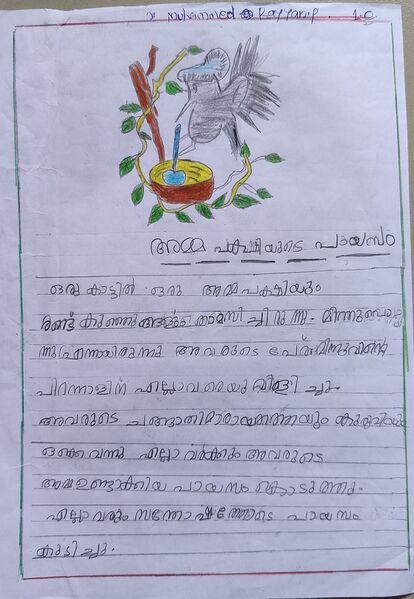 Muhammed Rayyan.P. 1.C
അമ്മ പക്ഷിയുടെ പായസം
ഒരു കാട്ടിൽ ഒരു അമ്മപക്ഷിയും
രണ്ട് കുഞ്ഞുങ്ങളും താമസിച്ചിരുന്നു. മിന്നു
ന്നുഎന്നായിരുന്നു അവരുടെ പേര് മിന്നുവിന്റെ
പിറന്നാളിന് എല്ലാവരെയു വിളിച്ചു.
അവരുടെ ചങ്ങാതിമാരായ കുരുവിയും
ഒക്കെ വന്നു എല്ലാവർക്കും അവരുടെ
അമ്മ ഉണ്ടാക്കിയ പായസം കൊടുത്തു.
എല്ലാവരും സന്തോഷത്തോടെ പായസം
കുടിച്ചു.